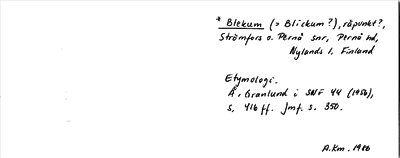 * Blekum (= Blickum?), råpunkt?,
Strömfors o. Pernå snr, Pernå hd,
Nylands l. Finland
Etymologi.
Å. Granlund i SNF 44 (1956),
s. 416 ff. Jmf. s. 350.
A.Km. 1986